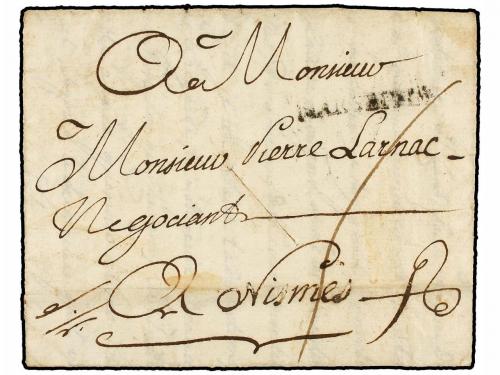 A Monsieur
MARSEILLE
Monsieur Pierre Larnac
Negociant
A Nismes